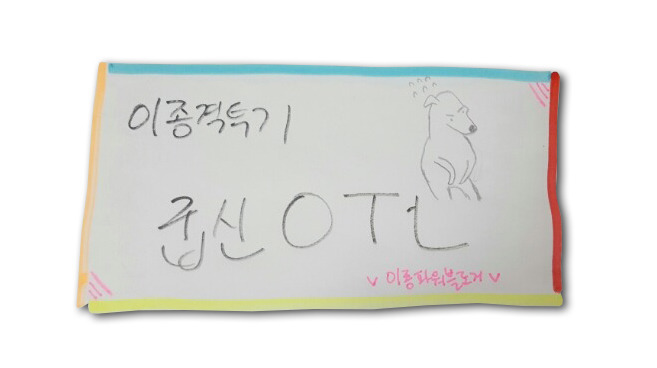 이종격투기
굽신 OTL
v 이종파워블로거 v